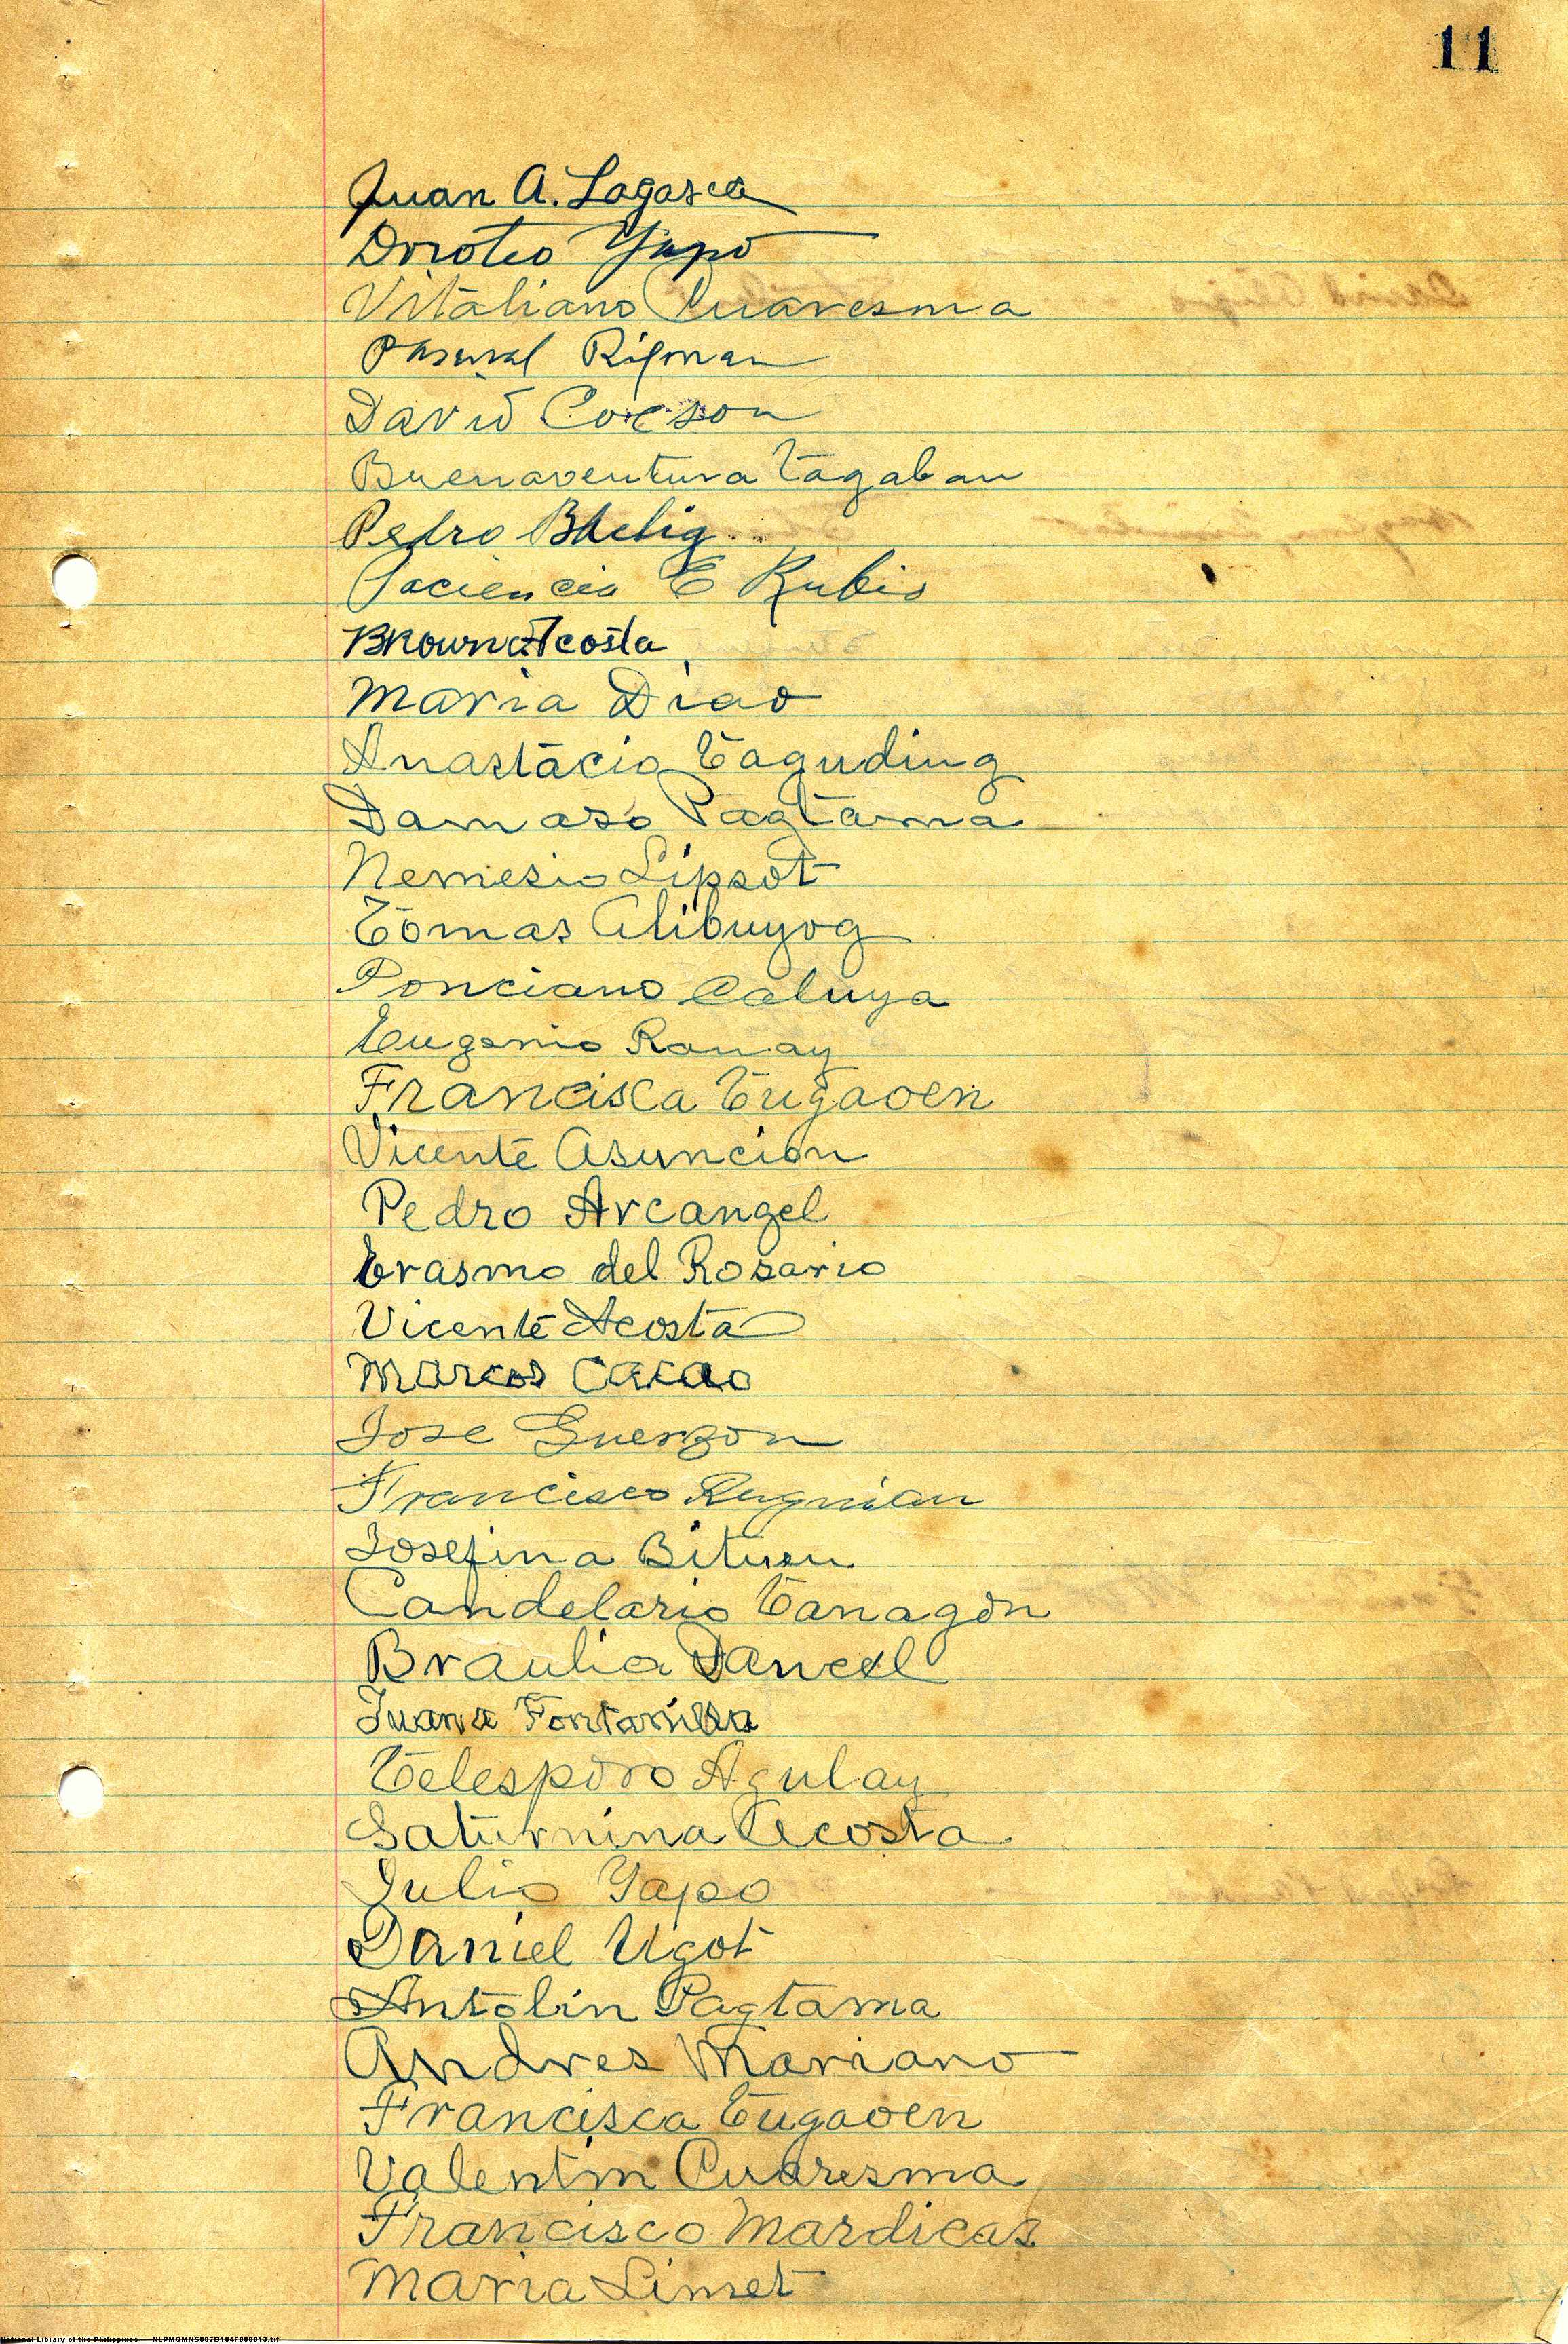 11
Juan A. Lagasca
Doroteo Yapo
Vitaliano Cuaresma
Pascual Rigman
David Cocson
Buenaventura Tagaban
Pedro
Paciencia E Rubio
Brown Acosta
Maria Diao
Anastacio Taguding
Damaso Pagtama
Nemesio Lipsot
Tomas Alibuyog
Ponciano Caluya
Eugenio Ramay
Francisca Tugaoen
Vicente Asuncion
Pedro Arcangel
Erasmo del Rosario
Vicente Acosta
Marcos Cacao
Jose Guerzon
Francisco Rugnian
Josefina Bituen
Candelario Tanagon
Braulia Dancel
Juana Fontanilla
Telesporo Agulay
Saturnina Acosta
Julio Yapo
Daniel Ugot
Antolin Pagtama
Andres Mariano
Francisca Tugaoen
Valentin Cuaresma
Francisco Mardicas
Maria Limset
National Library of the Philippines NLPMQMNS007B104F000013.tif